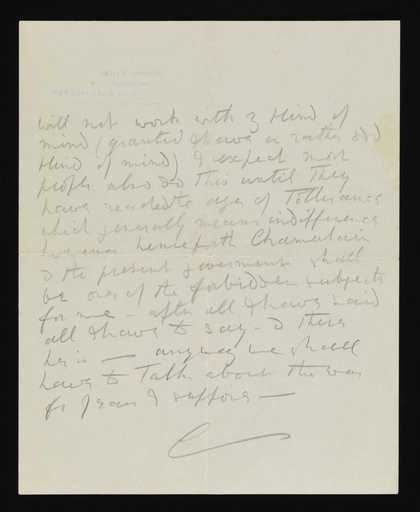 will not work with my kind of
mind (granted I have a rather odd
kind of mind) I expect most
people also do this until they
have reached the age of Tollerance
which generally means indifference
henceforth Chamberlain
& the present Goverment shall
be one of the forbidden subjects
for me – after all I have said
all I have to say – & there
he is — anyway we shall
have to Talk about the war
for years I suppose —